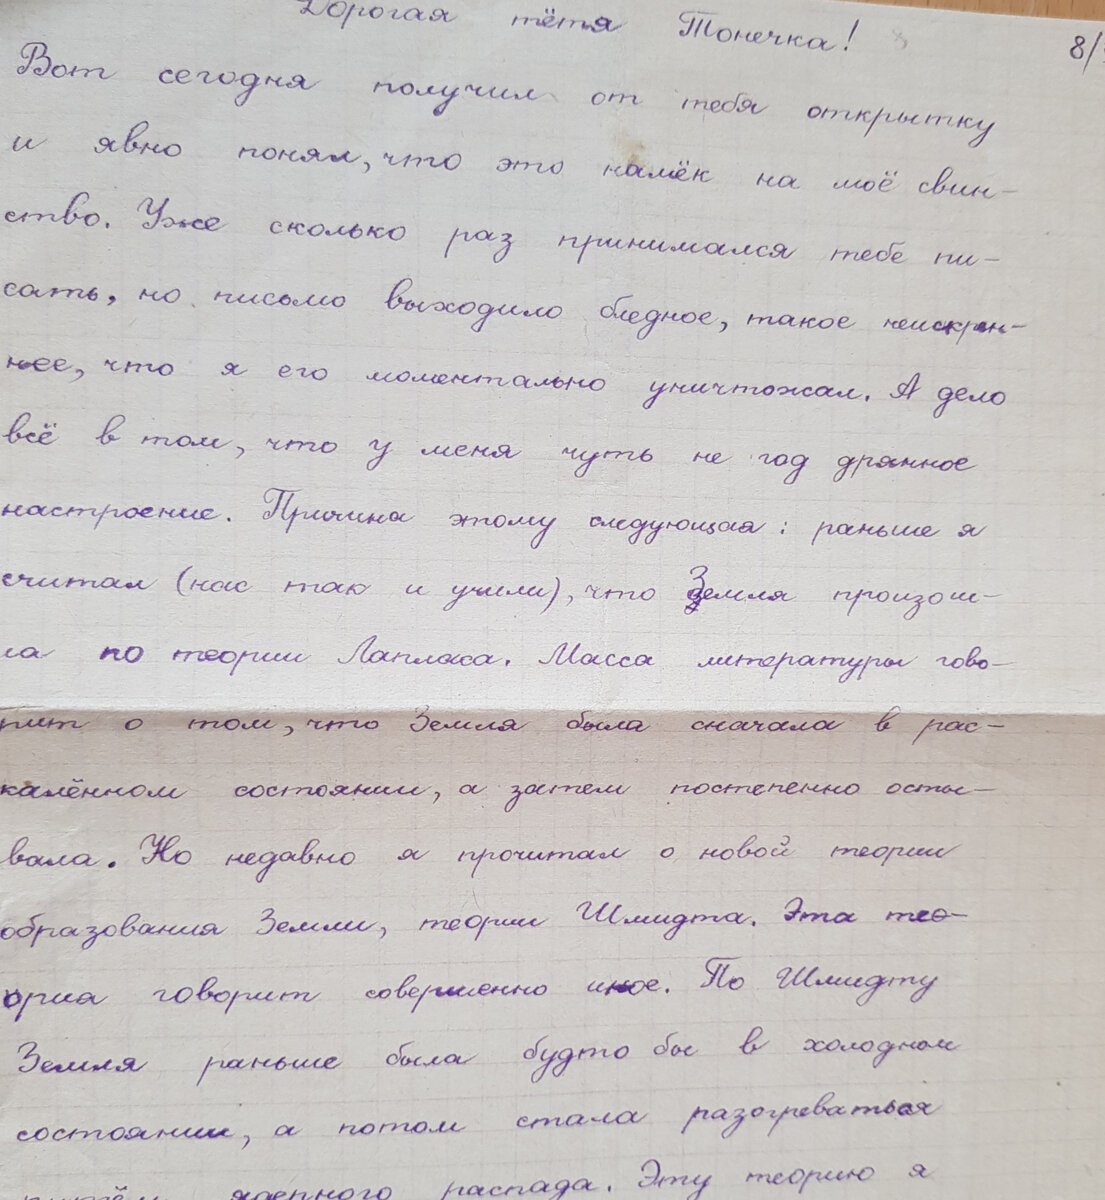 Дорогая тётя Тонечка!
8/
Вот сегодня получил от тебя открытку
и явно понял, что это намёк на моё свин-
ство. Уже сколько раз принимался тебе пи-
сать, но письмо выходило бледное, такое неискрен-
нее, что я его моментально уничтожал. А дело
всё в том, что у меня чуть не год дрянное
настроение. Причина этому следующая: раньше я
считал (нас так и учили), что Земля произош-
ла по теории Лапласа. Масса литературы гово-
рит о том, что Земля была сначала в рас-
калённом состоянии, а затем постепенно осты-
вала. Но недавно я прочитал о новой теории
образования Земли, теории Шмидта. Эта тео-
рия говорит совершенно иное. По Шмидту
Земля раньше была будто бы в холодном
состоянии, а потом стала разогреваться
путём ядерного распада. Эту теорию я